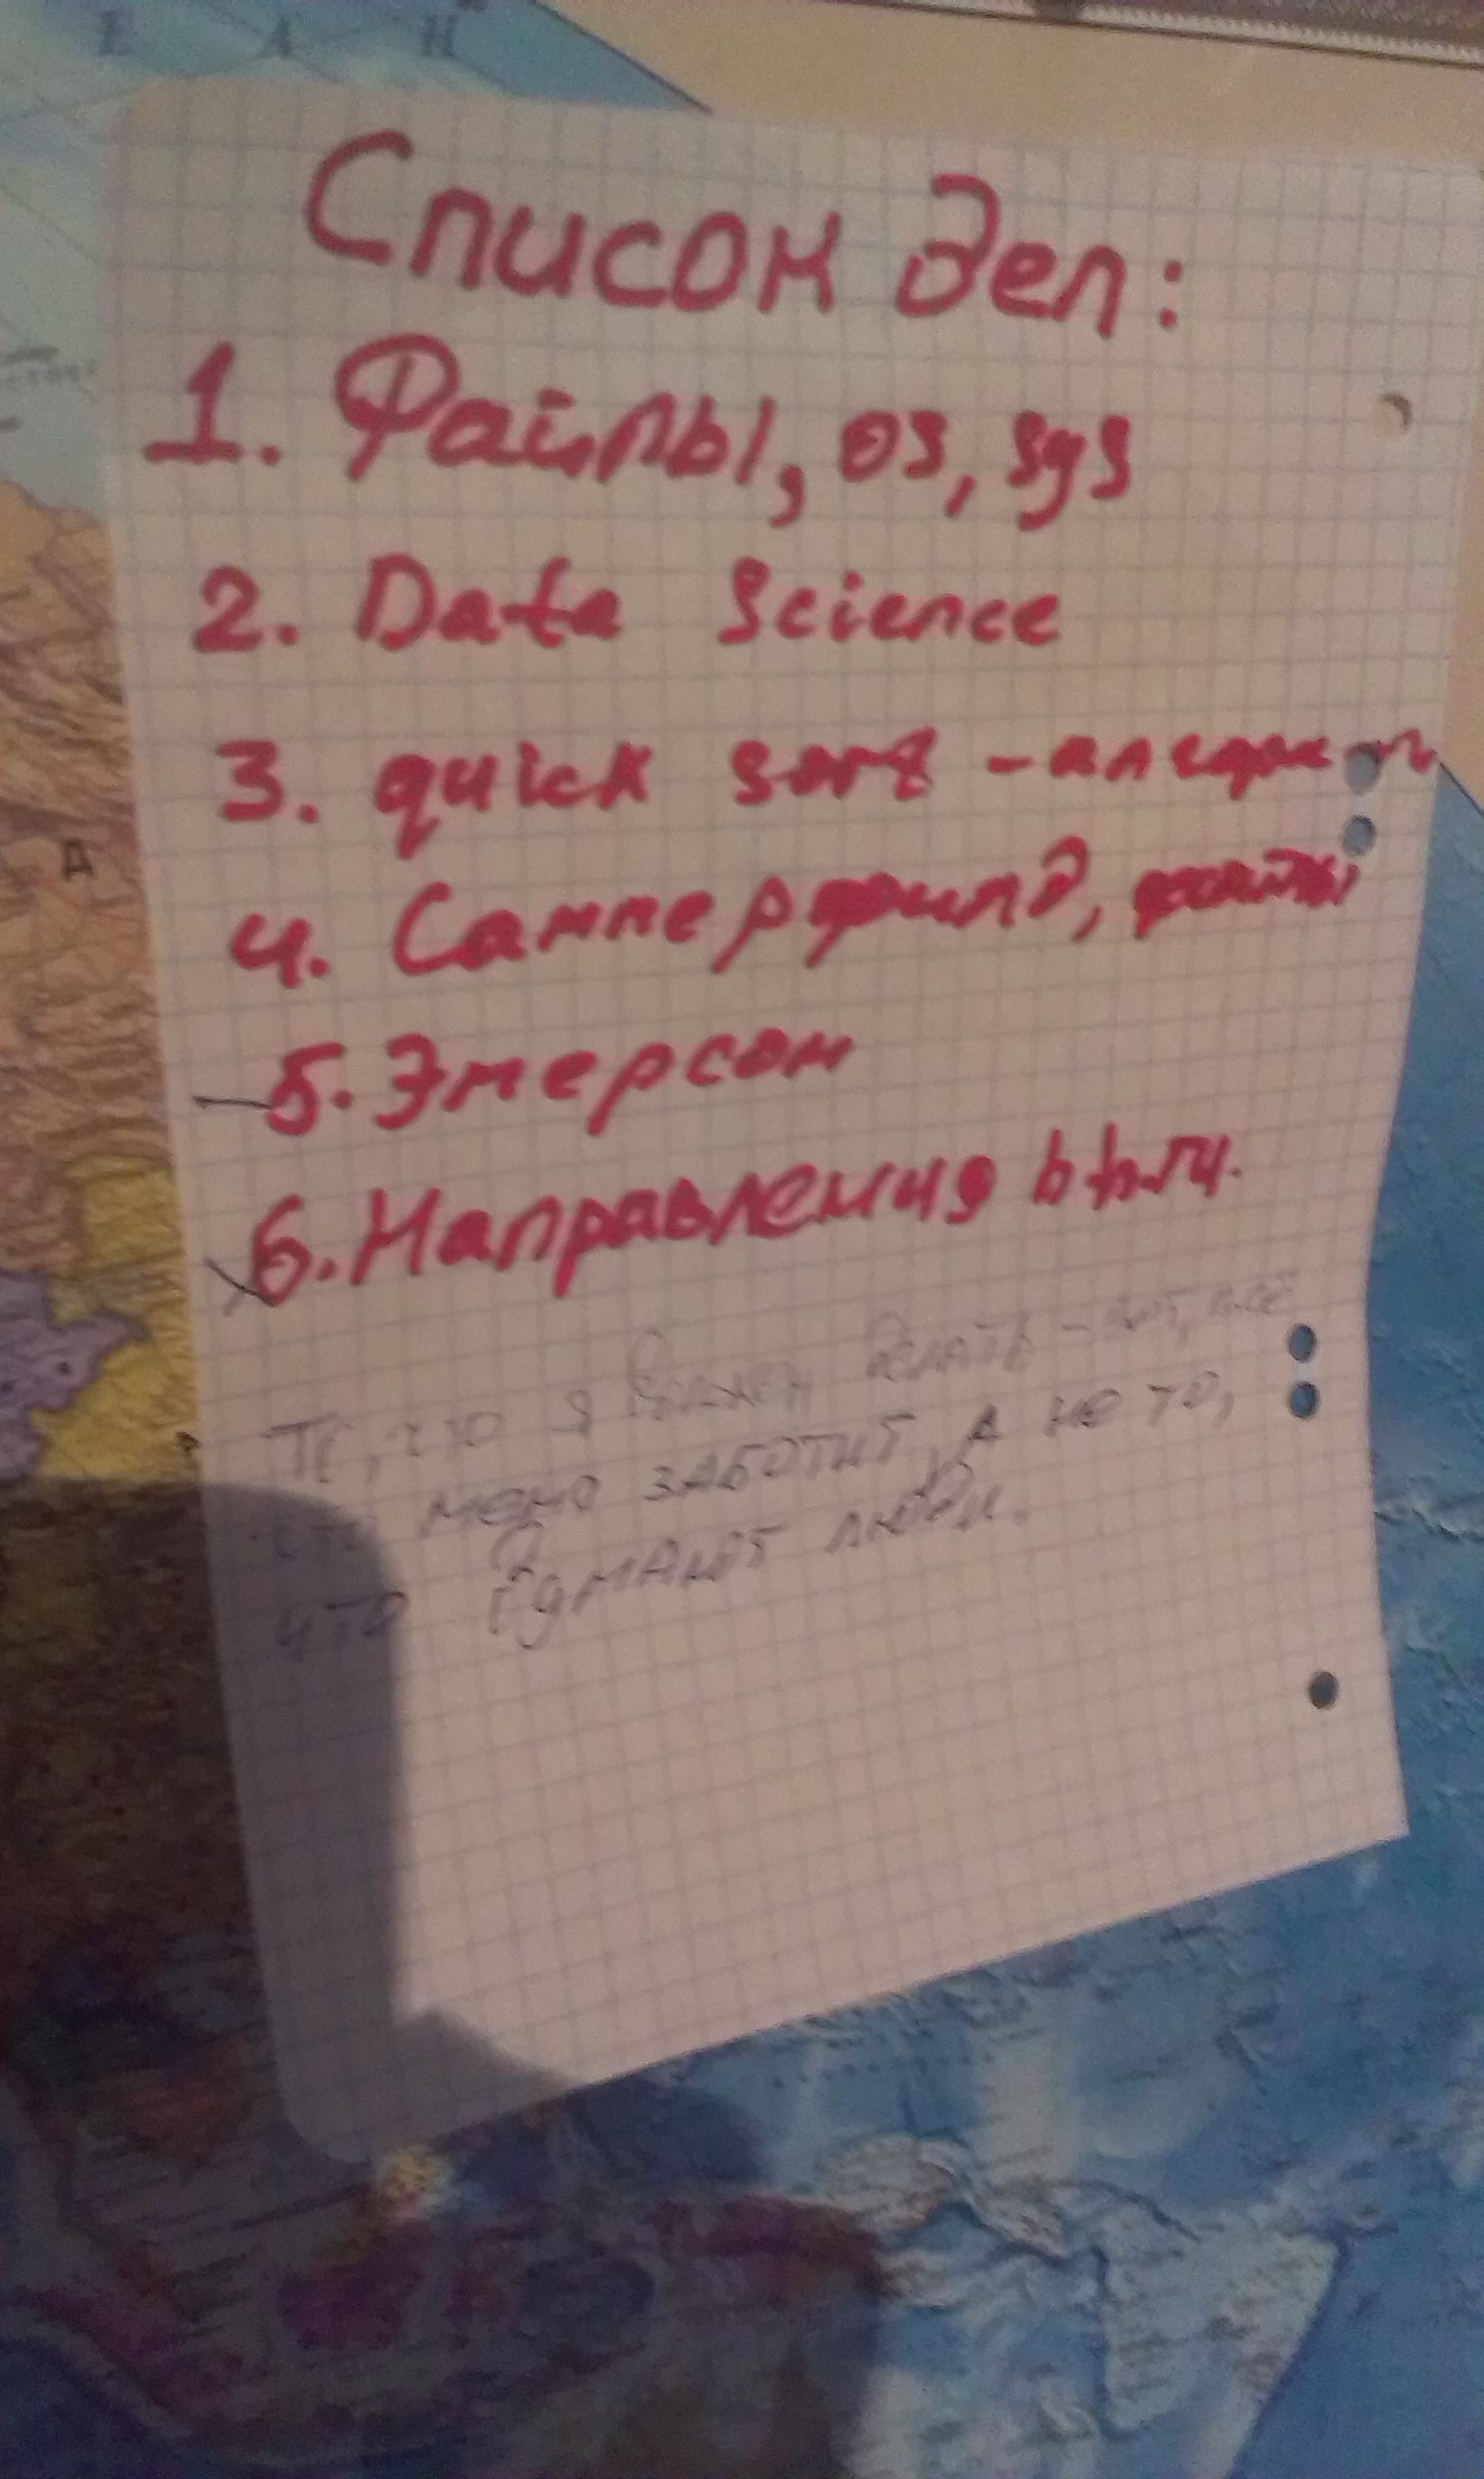 Е А Н
Список дел:
1. Файлы, os, sys
2. Data Science
3. quick sort - алгоритм
4. Саммерфилд,
5. Эмерсон
6. Направления hh.ru.
То, что я должен делать - вот, всё
что меня заботит, а не то,
что думают люди.